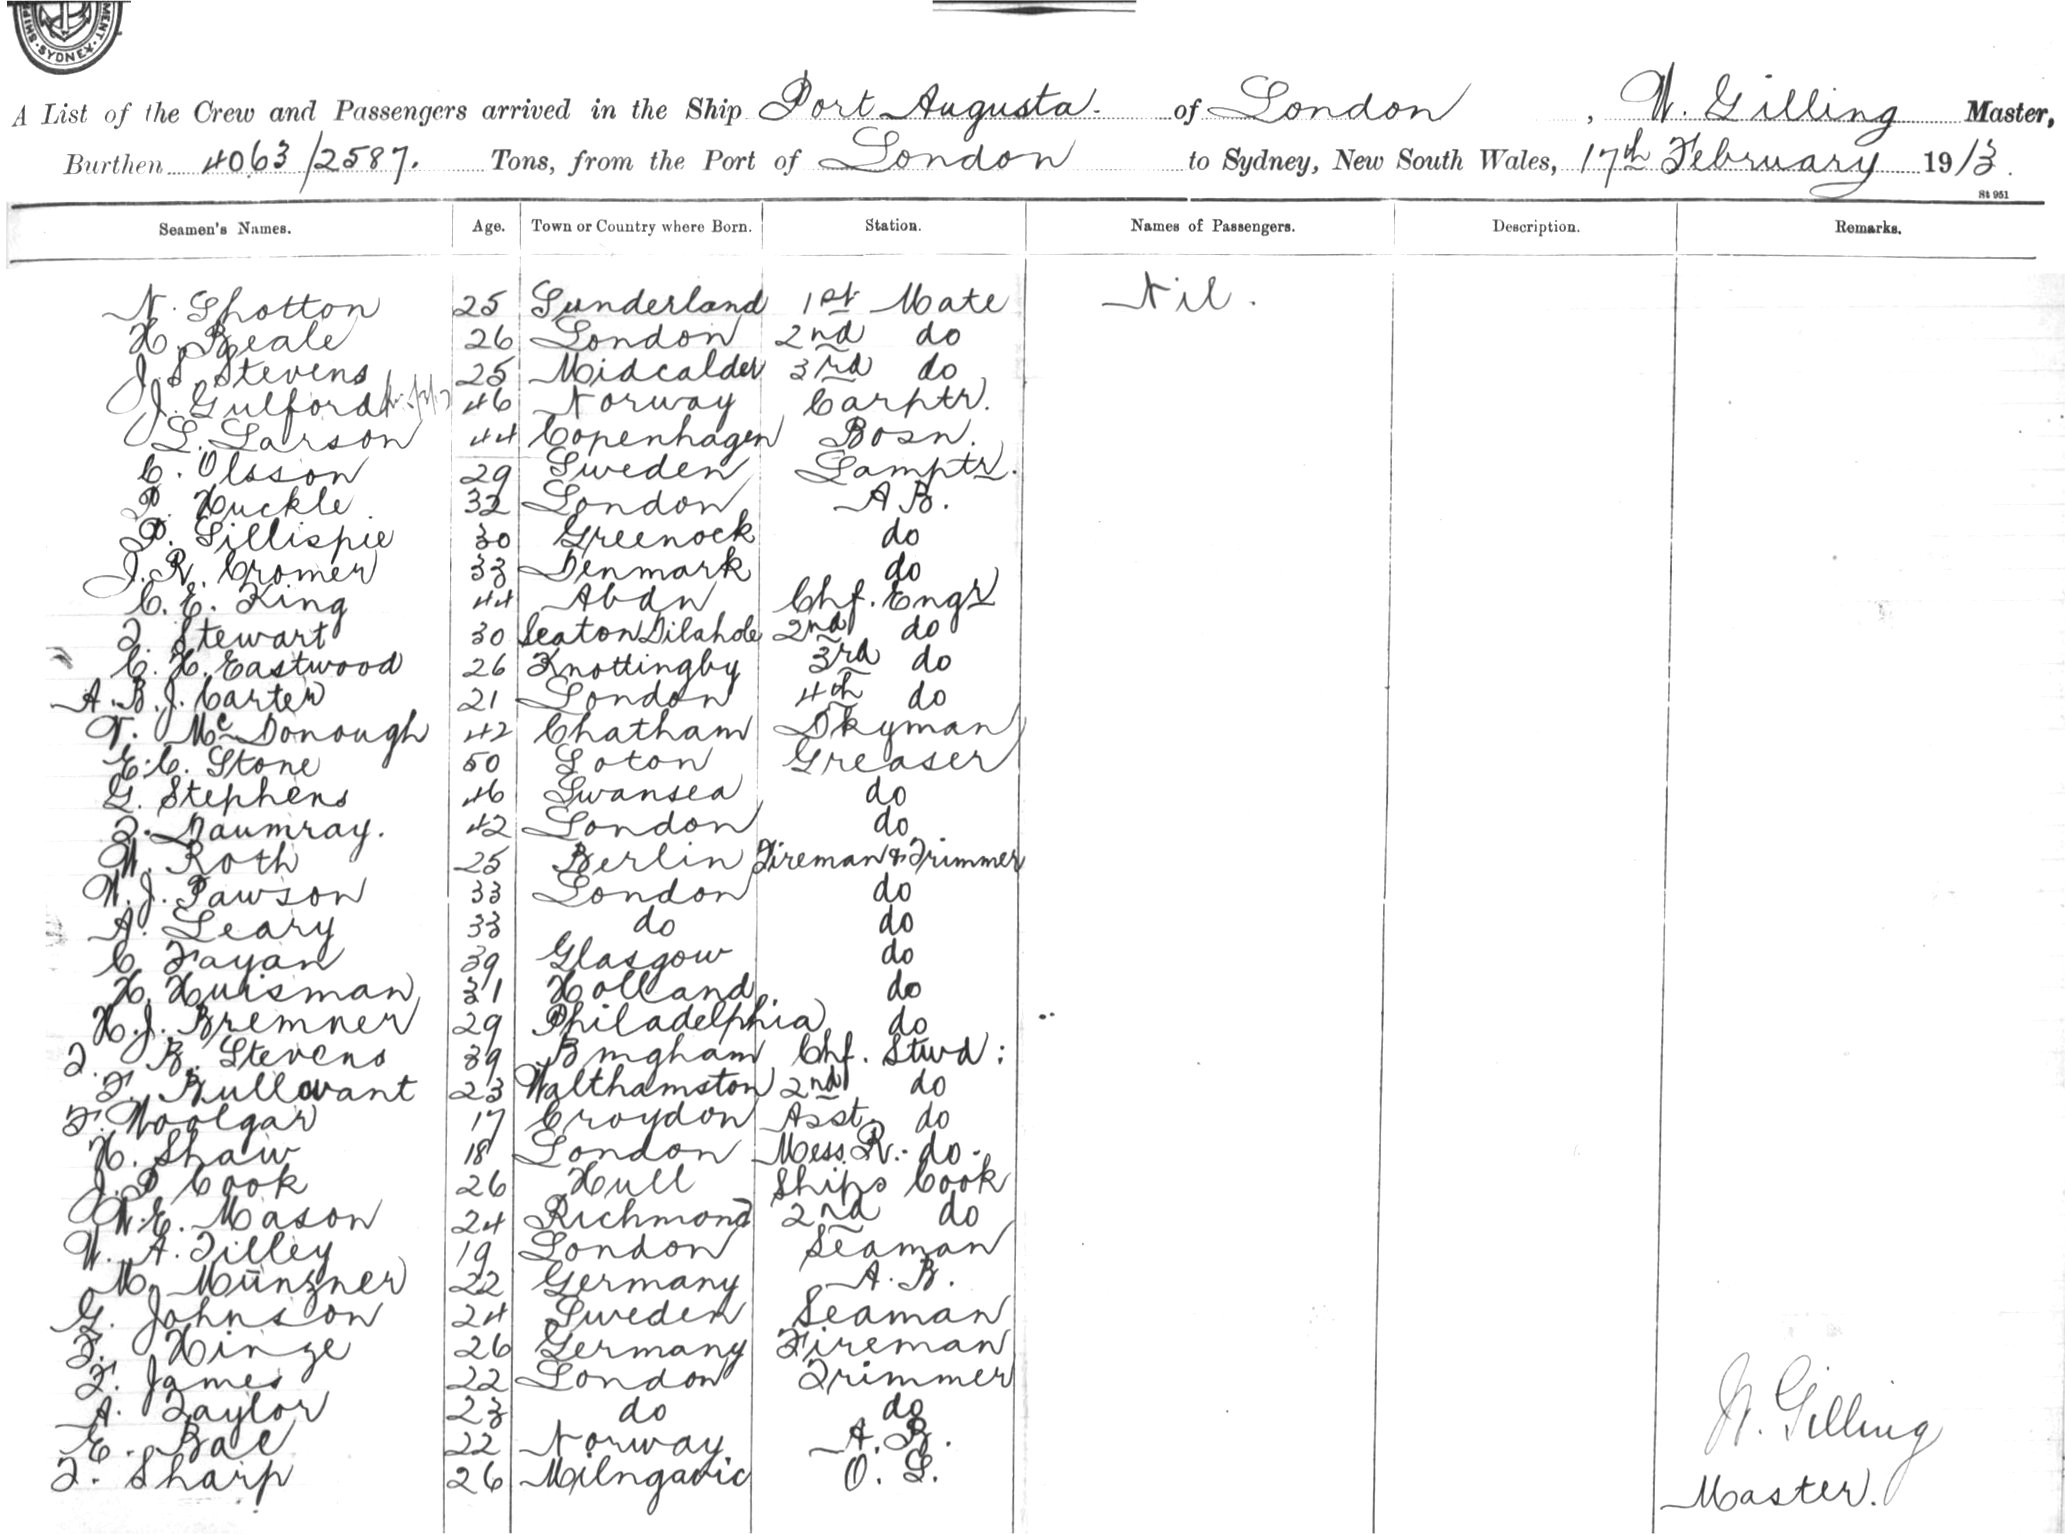 MENT · SYDNEY · SHIPP
A List of the Crew and Passengers arrived in the Ship Port Augusta. of London , W. Gilling Master,
Burthen 4063/2587. Tons, from the Port of London to Sydney, New South Wales, 17th February 1913.
St 951
Seamen's Names. Age. Town or Country where Born. Station. Names of Passengers. Description. Remarks.
N. Shotton 25 Sunderland 1st Mate Nil.
H. Beale 26 London 2nd do
J. S. Stevens 25 Midcalder 3rd do
J. Gulford 46 Norway Carptr.
L. Larson 44 Copenhagen Bosn.
C. Olsson 29 Sweden Lamptr.
P. Huckle 32 London A B.
P. Gillispie 30 Greenock do
J. R. Cromer 33 Denmark do
C. E. King 44 Abdn Chf. Engr
T. Stewart 30 Seaton Dilahole 2nd do
C. H. Eastwood 26 Knottingby 3rd do
A. B. J. Carter 21 London 4th do
T. McDonough 42 Chatham Dkyman
E. C. Stone 50 Loton Greaser
G. Stephens 46 Swansea do
T. Daumray. 42 London do
W. Roth 25 Berlin Fireman & Trimmer
W. J. Pawson 33 London do
A. Leary 33 do do
C. Fayan 39 Glasgow do
H. Huisman 31 Holland do
H. J. Bremner 29 Philadelphia do
T. B. Stevens 39 Bmgham Chf. Stwd:
F. Bullavant 23 Walthamston 2nd do
F. Woolgar 17 Croydon Asst. do
H. Shaw 18 London Mess. R. do.
J. P Cook 26 Hull Ships Cook
W. E. Mason 24 Richmond 2nd do
W. A. Tilley 19 London Seaman
M. Münzner 22 Germany A. B.
G. Johnson 24 Sweden Seaman
F. Hinze 26 Germany Fireman
F. James 22 London Trimmer
A. Taylor 23 do do
E. Bae 22 Norway A. B.
T. Sharp 26 Milngavic O. S.
W. Gilling
Master.